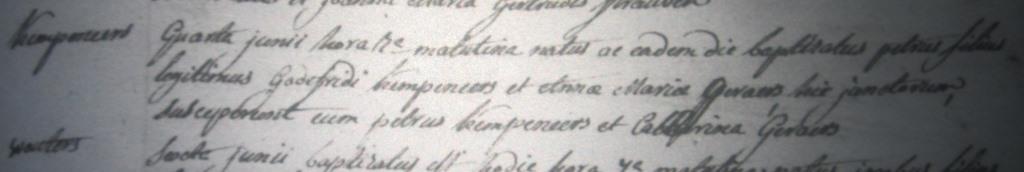 et joanna Maria Gertrudis
Kempeneers Quarta junii hora 7e matutina natus ac eadem die baptizatus petrus filius
legittimus Godefridi kempeneers et Annæ Mariæ Geraers hic junctorum,
susceperunt eum petrus kempeneers et Catharina Geraers
wouters Sexta junii baptizatus est hodie hora 7e matutina natus filius